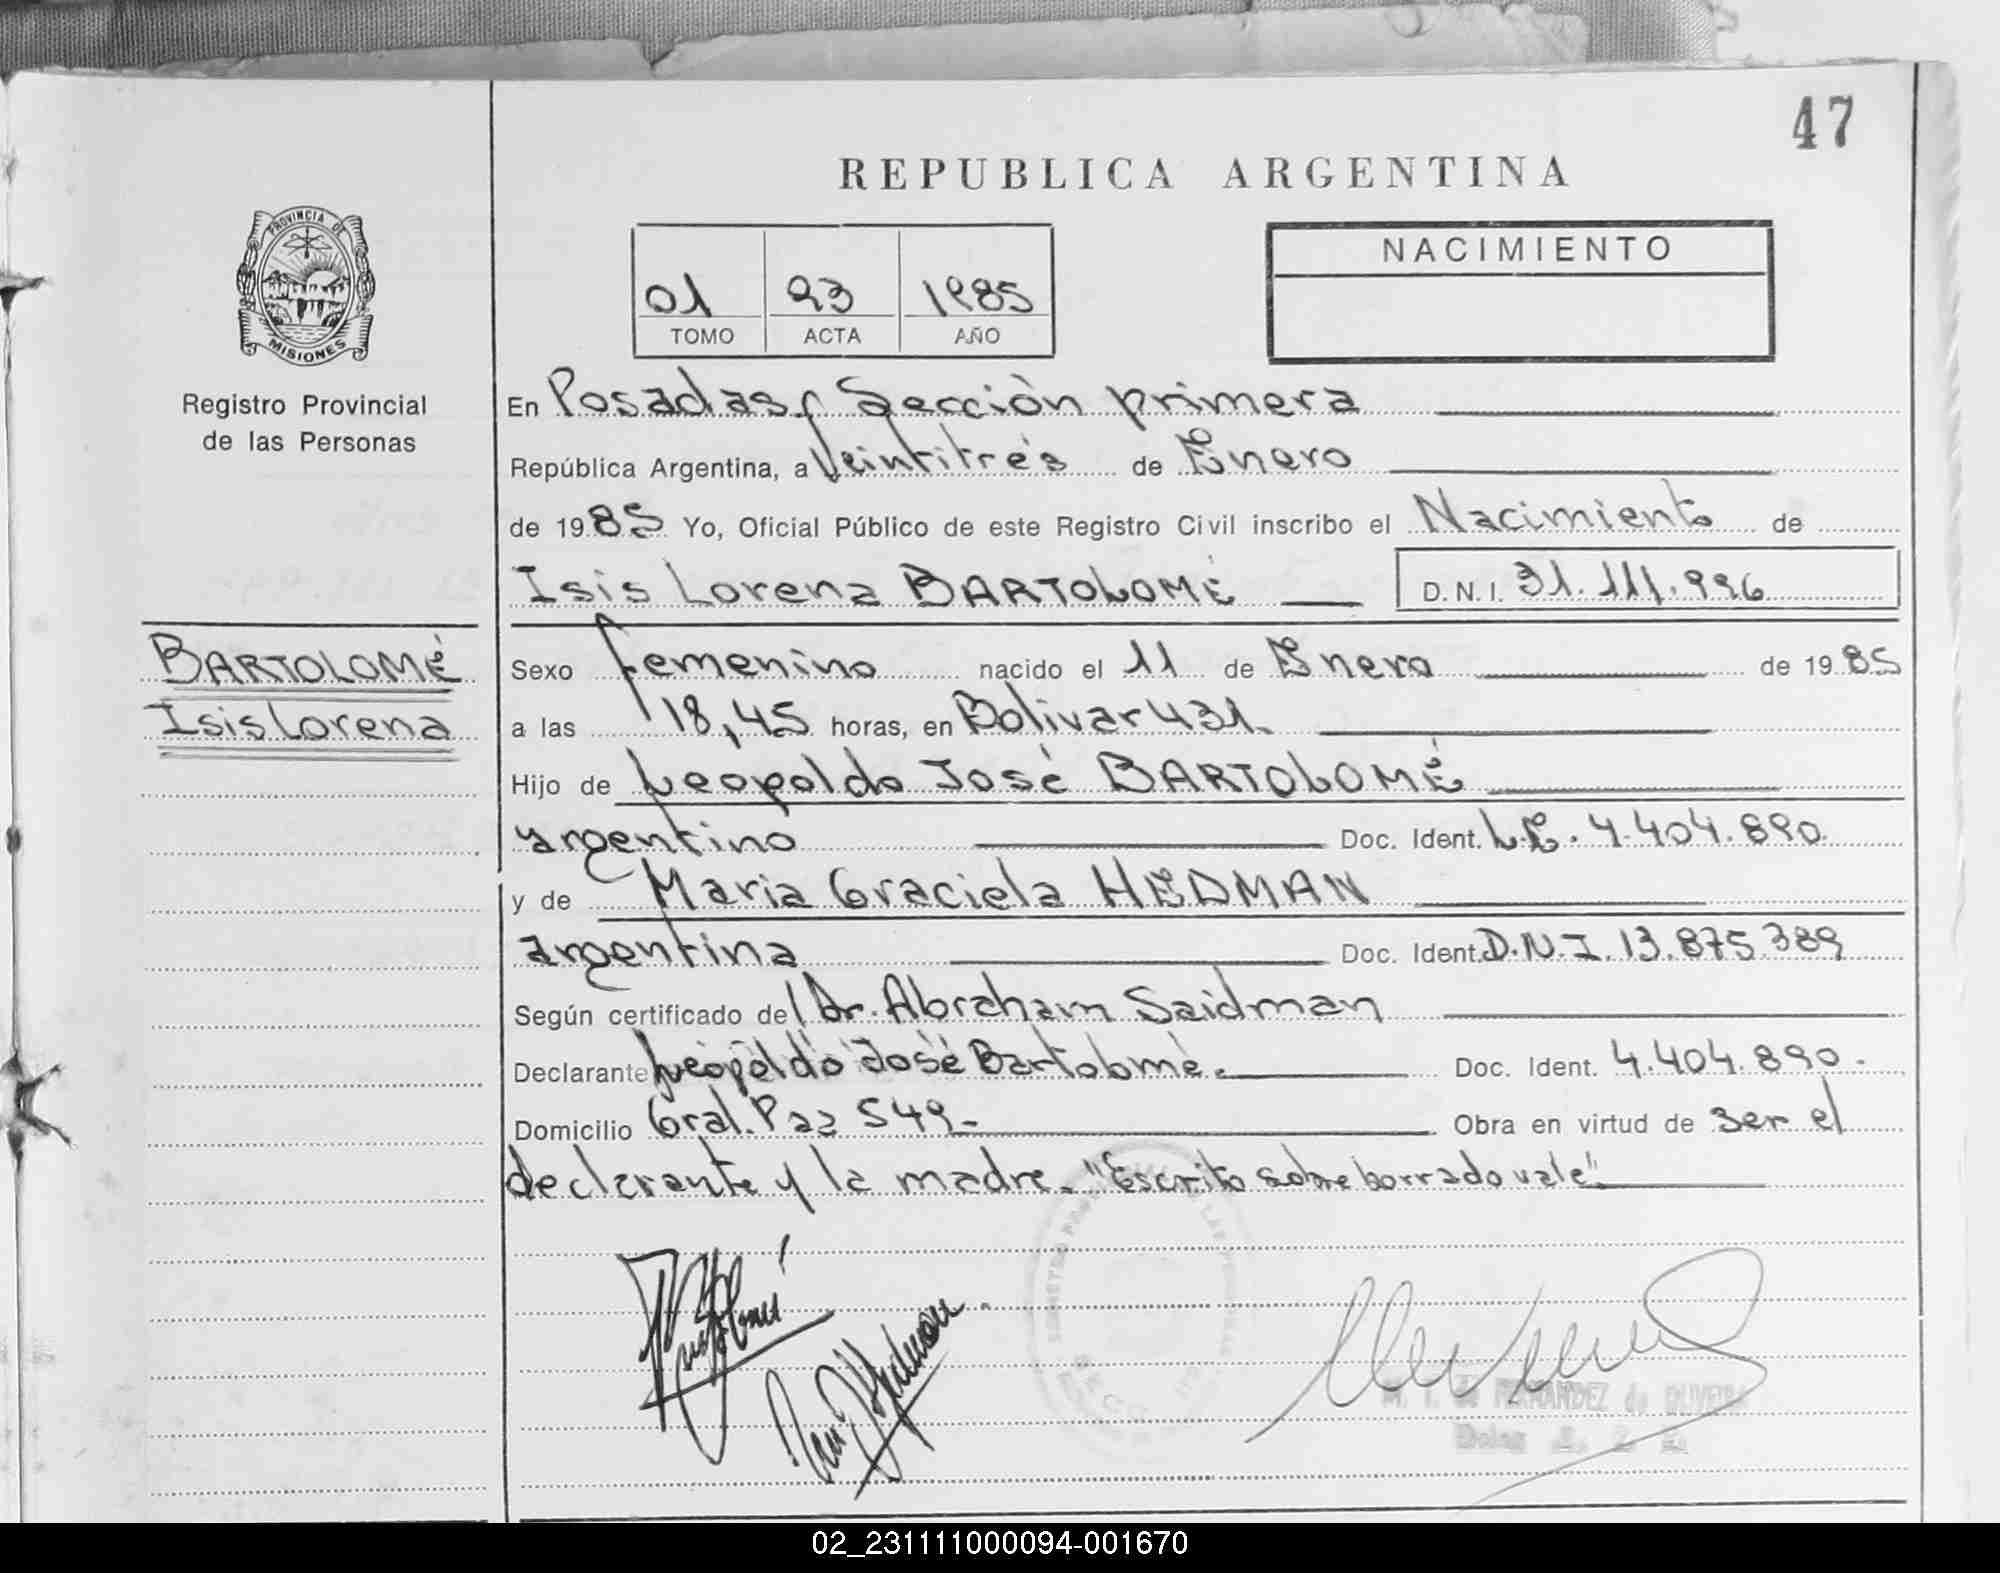 47
REPUBLICA ARGENTINA
PROVINCIA DE
MISIONES
Registro Provincial
de las Personas
01 93 1985
TOMO ACTA AÑO
NACIMIENTO
En Posadas, Sección primera
República Argentina, a Veintitrés de Enero
de 1985 Yo, Oficial Público de este Registro Civil inscribo el Nacimiento de
Isis Lorena BARTOLOMÉ D.N.I. 31.111.996
BARTOLOMÉ
Isis Lorena
Sexo femenino nacido el 11 de Enero de 1985
a las 18,45 horas, en Bolivar 431.
Hijo de Leopoldo José BARTOLOMÉ
argentino Doc. Ident. L.E. 4.404.890.
y de Maria Graciela HEDMAN
argentina Doc. Ident. D.N.I. 13.875.389
Según certificado del Dr. Abraham Saidman
Declarante Leopoldo José Bartolomé. Doc. Ident. 4.404.890.
Domicilio Gral. Paz 549.- Obra en virtud de ser el
declarante y la madre. "Escrito sobre borrado vale"
M. T. de FERNANDEZ de OLIVEIRA
02_231111000094-001670